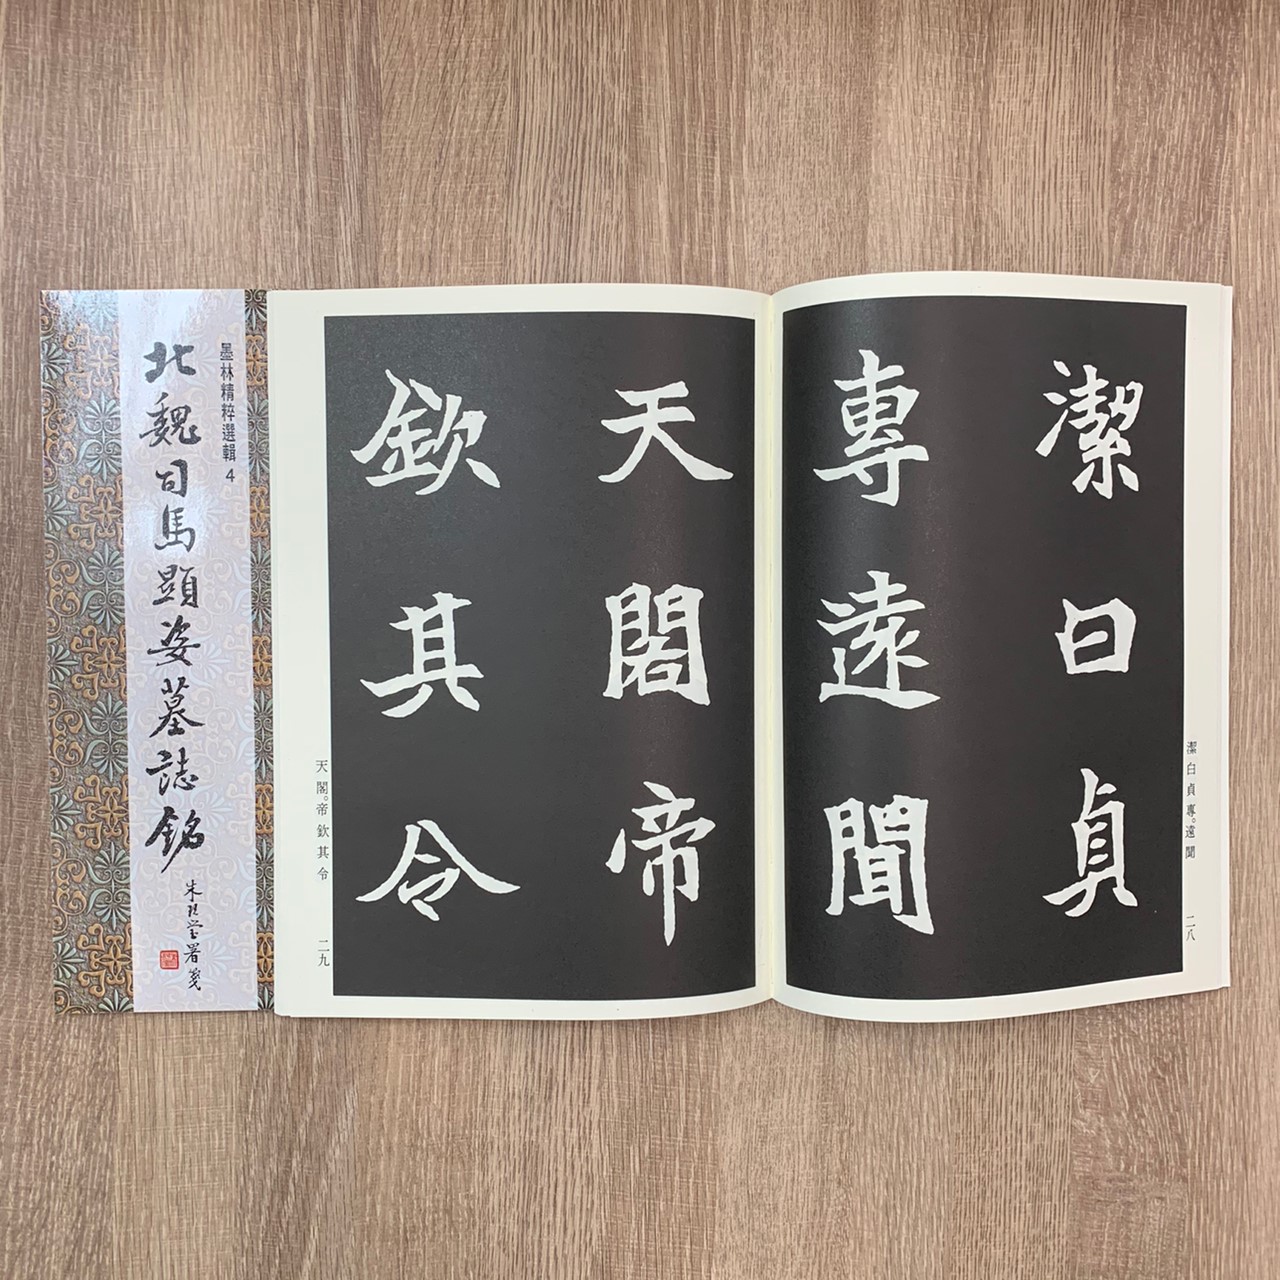 墨林精粹選輯4
北魏司馬顯姿墓誌銘
朱玖瑩署箋
潔白貞專。遠聞
二八
潔曰貞
專遠聞
天閣帝
欽其令
天閣。帝欽其令
二九